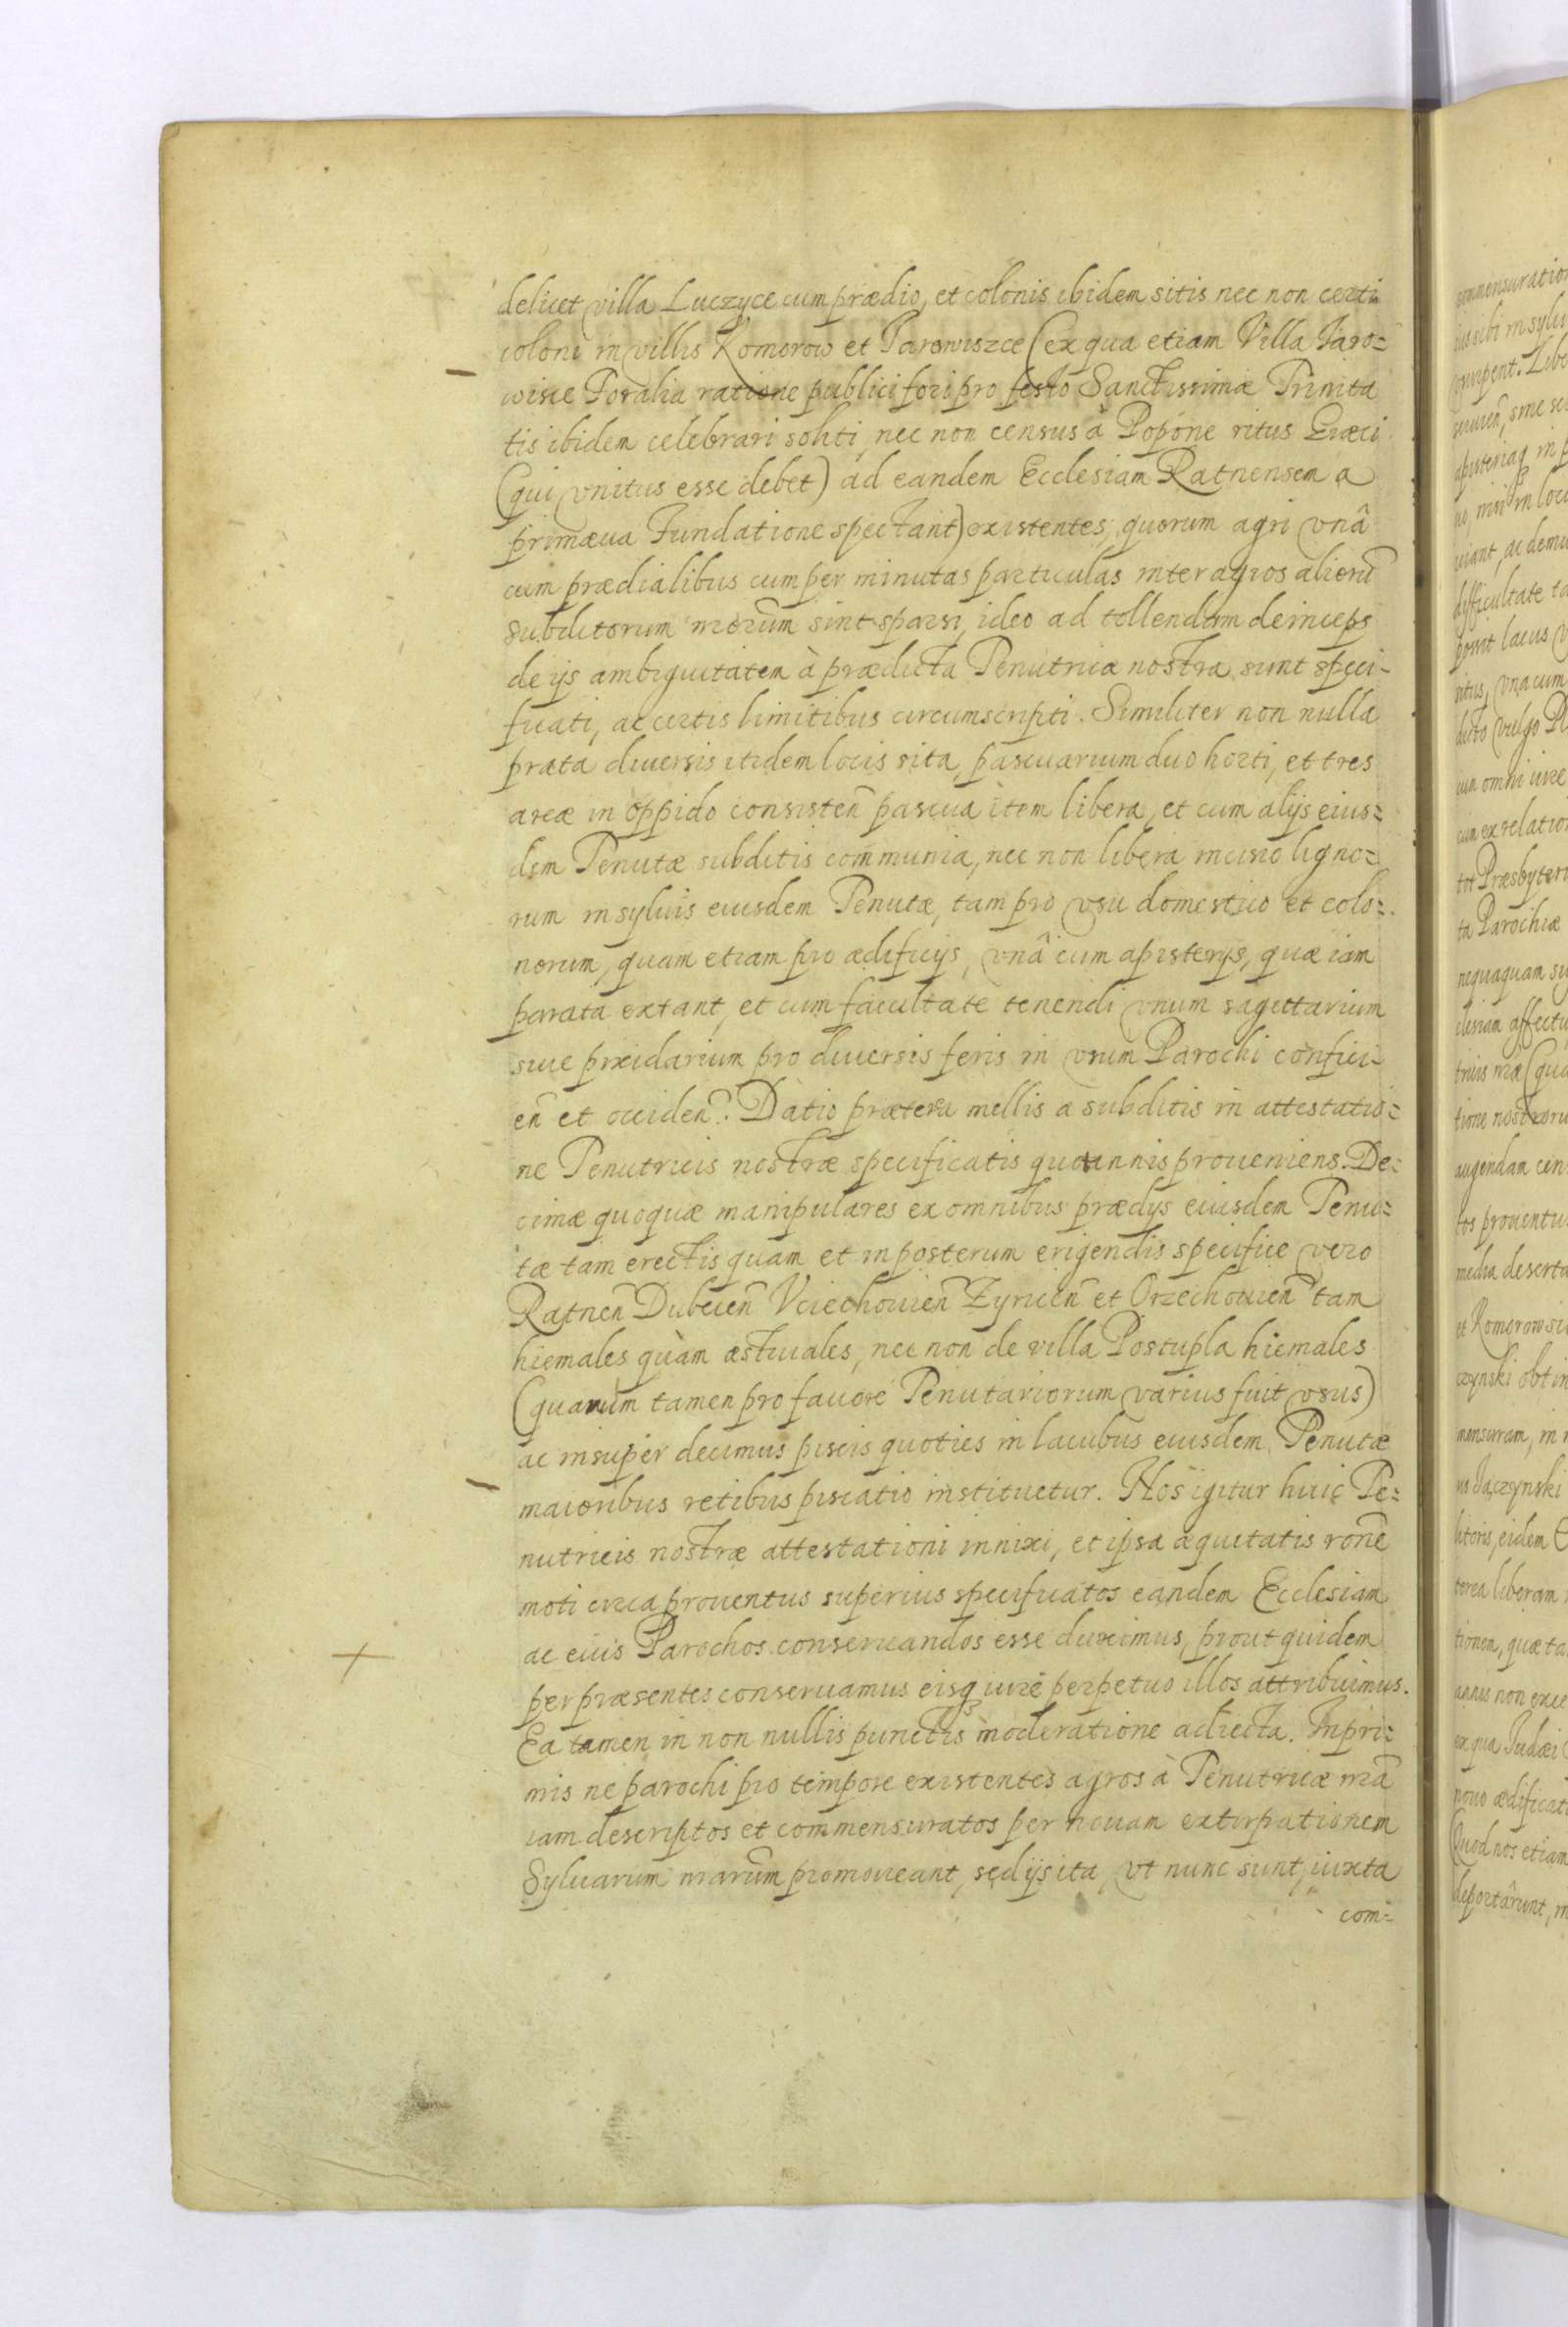 delicet villa Luczyce cum prædio, et colonis ibidem sitis nec non certi
coloni in villis Komorow et Jarowiszce (ex qua etiam Villa Jaro=
wisce Foralia ratione publici fori pro festo Sanctissimæ Trinita
tis ibidem celebrari soliti, nec non census à Popone ritus Græci
(qui vnitus esse debet) ad eandem Ecclesiam Ratnensem a
primæua Fundatione spectant) existentes, quorum agri vnâ
cum prædialibus cum per minutas particulas inter agros alioru͂
subditorum nrorum͂ sint sparsi, ideo ad tollendam deinceps
de ijs ambiguitatem à prædicta Tenutrice nostra sunt speci-
ficati, ac certis limitibus circumscripti. Similiter non nulla
prata diuersis itidem locis sita, pascuarium duo horti, et tres
areæ in oppido consisten͂ pascua item libera, et cum alijs eius=
dem Tenutæ subditis communia, nec non libera incisio ligno=
rum in syluis eiusdem Tenutæ, tam pro vsu domestico et colo=
norum, quam etiam pro ædificijs, vnâ cum apisterijs, quæ iam
parata extant, et cum facultate tenendi vnum sagittarium
siue præidarium pro diuersis feris in vsum Parochi conficí-
en͂ et occiden͂. Datio prætera mellis a subditis in attestatio=
ne Tenutricis nostræ specificatis quotannis proueniens. De=
cimæ quoquæ manipulares ex omnibus prædijs eiusdem Tenu=
tæ tam erectis quam et in posterum erigendis specifice vero
Ratnen͂ Dubecen͂ Vciechouien͂ Zyricen͂ et Orzechouien͂ tam
hiemales quàm æstiuales, nec non de villa Postupla hiemales
(quarum tamen pro fauore Tenutariorum varius fuit vsus)
ac insuper decimus piscis quoties in lacubus eiusdem Tenutæ
maioribus retibus piscatio instituetur. Nos igitur huic Te=
nutricis nostræ attestationi innixi, et ipsa æquitatis rone͂
moti circa prouentus superius specificatos eandem Ecclesiam
ac eius Parochos conseruandos esse duximus, prout quidem
per præsentes conseruamus eisq iure perpetuo illos attribuimus.
Ea tamen in non nullis punctis moderatione adiecta. Inpri=
mis ne parochi pro tempore existentes agros à Tenutrice nra͂
iam descriptos et commensuratos per nouam extirpationem
Syluarum nrarum͂ promoueant, sed ijs ita, vt nunc sunt, iuxta
com=